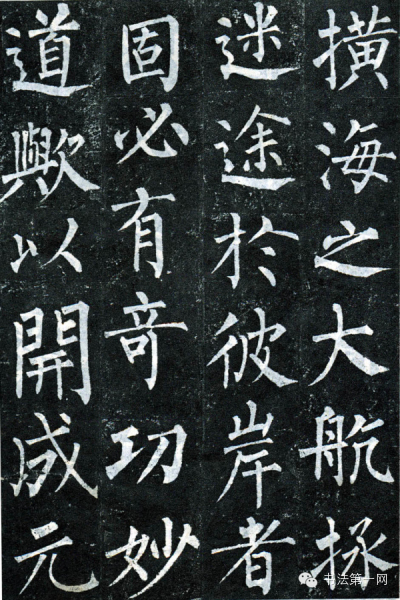 横海之大航拯
迷途於彼岸者
固必有奇功妙
道歟以開成元
书法第一网